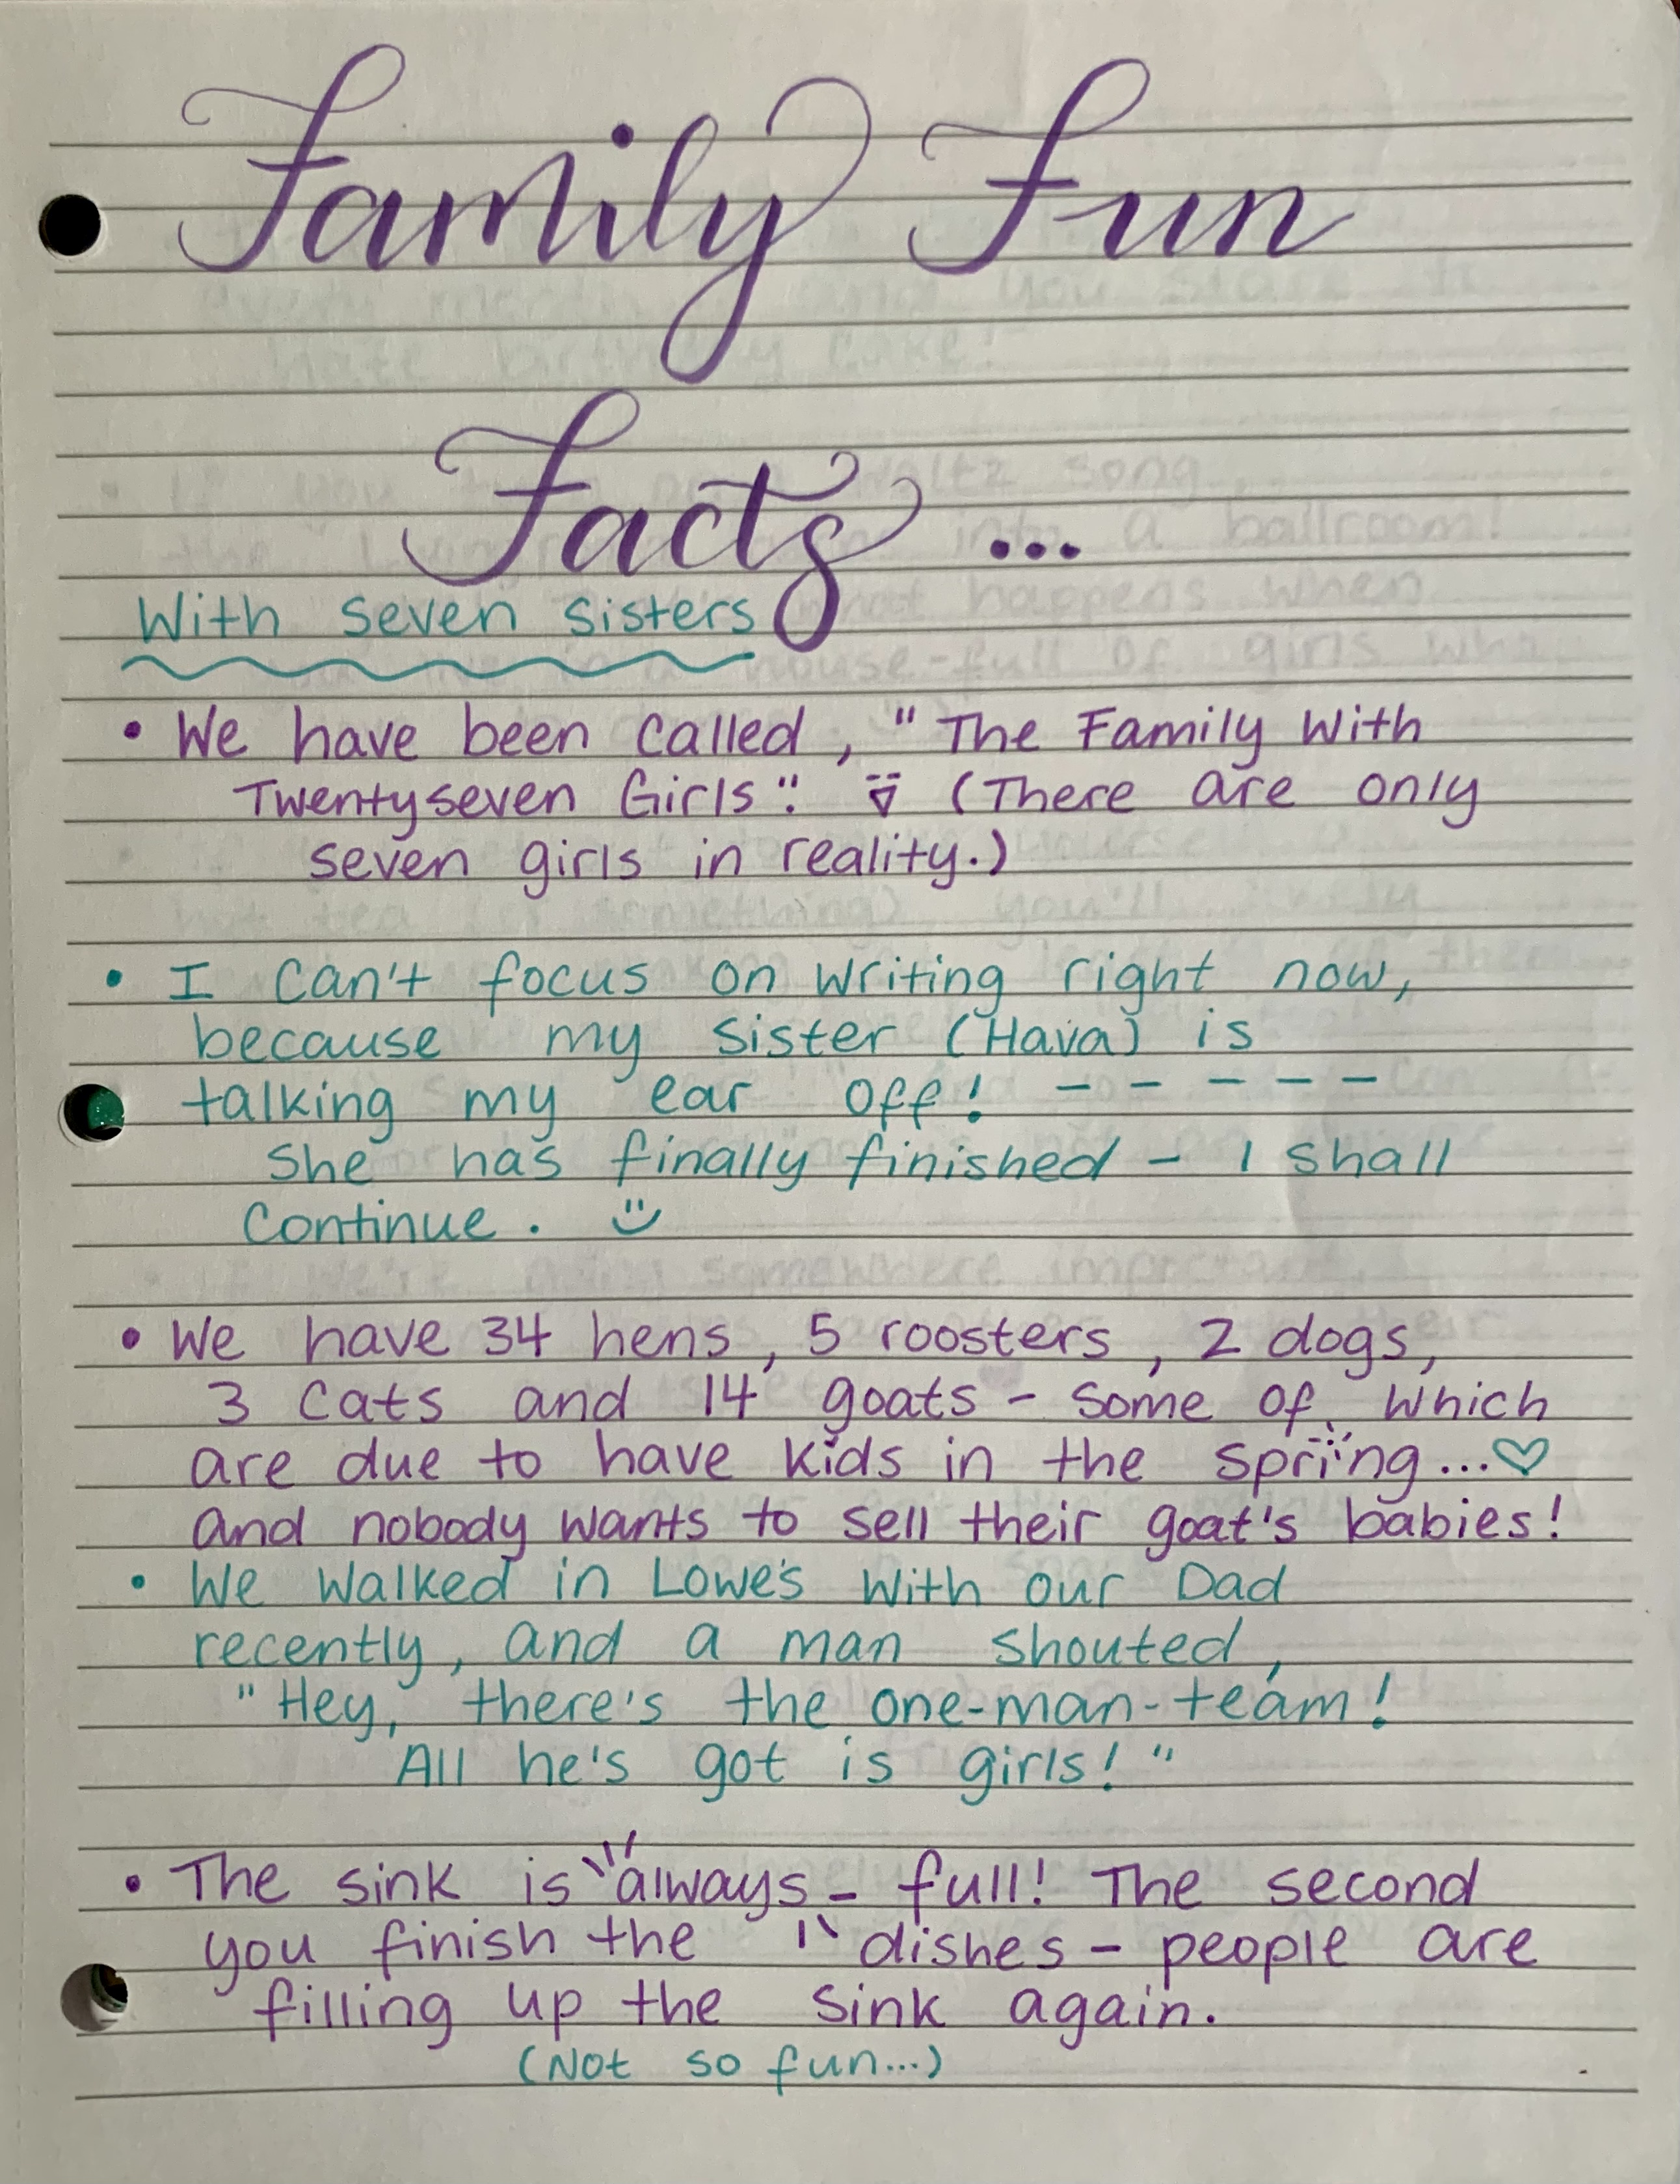 Family Fun
Facts...
With seven sisters
• We have been called, "The Family With
Twentyseven Girls". (There are only
seven girls in reality.)
• I can't focus on writing right now,
because my sister (Hava) is
talking my ear off! - - - - -
She has finally finished - I shall
continue. :)
• We have 34 hens, 5 roosters, 2 dogs,
3 cats and 14 goats - some of which
are due to have kids in the spring...♡
and nobody wants to sell their goat's babies!
• We walked in Lowe's with our Dad
recently, and a man shouted,
"Hey, there's the one-man-team!
All he's got is girls!"
• The sink is always - full! The second
you finish the dishes - people are
filling up the sink again.
(Not so fun...)